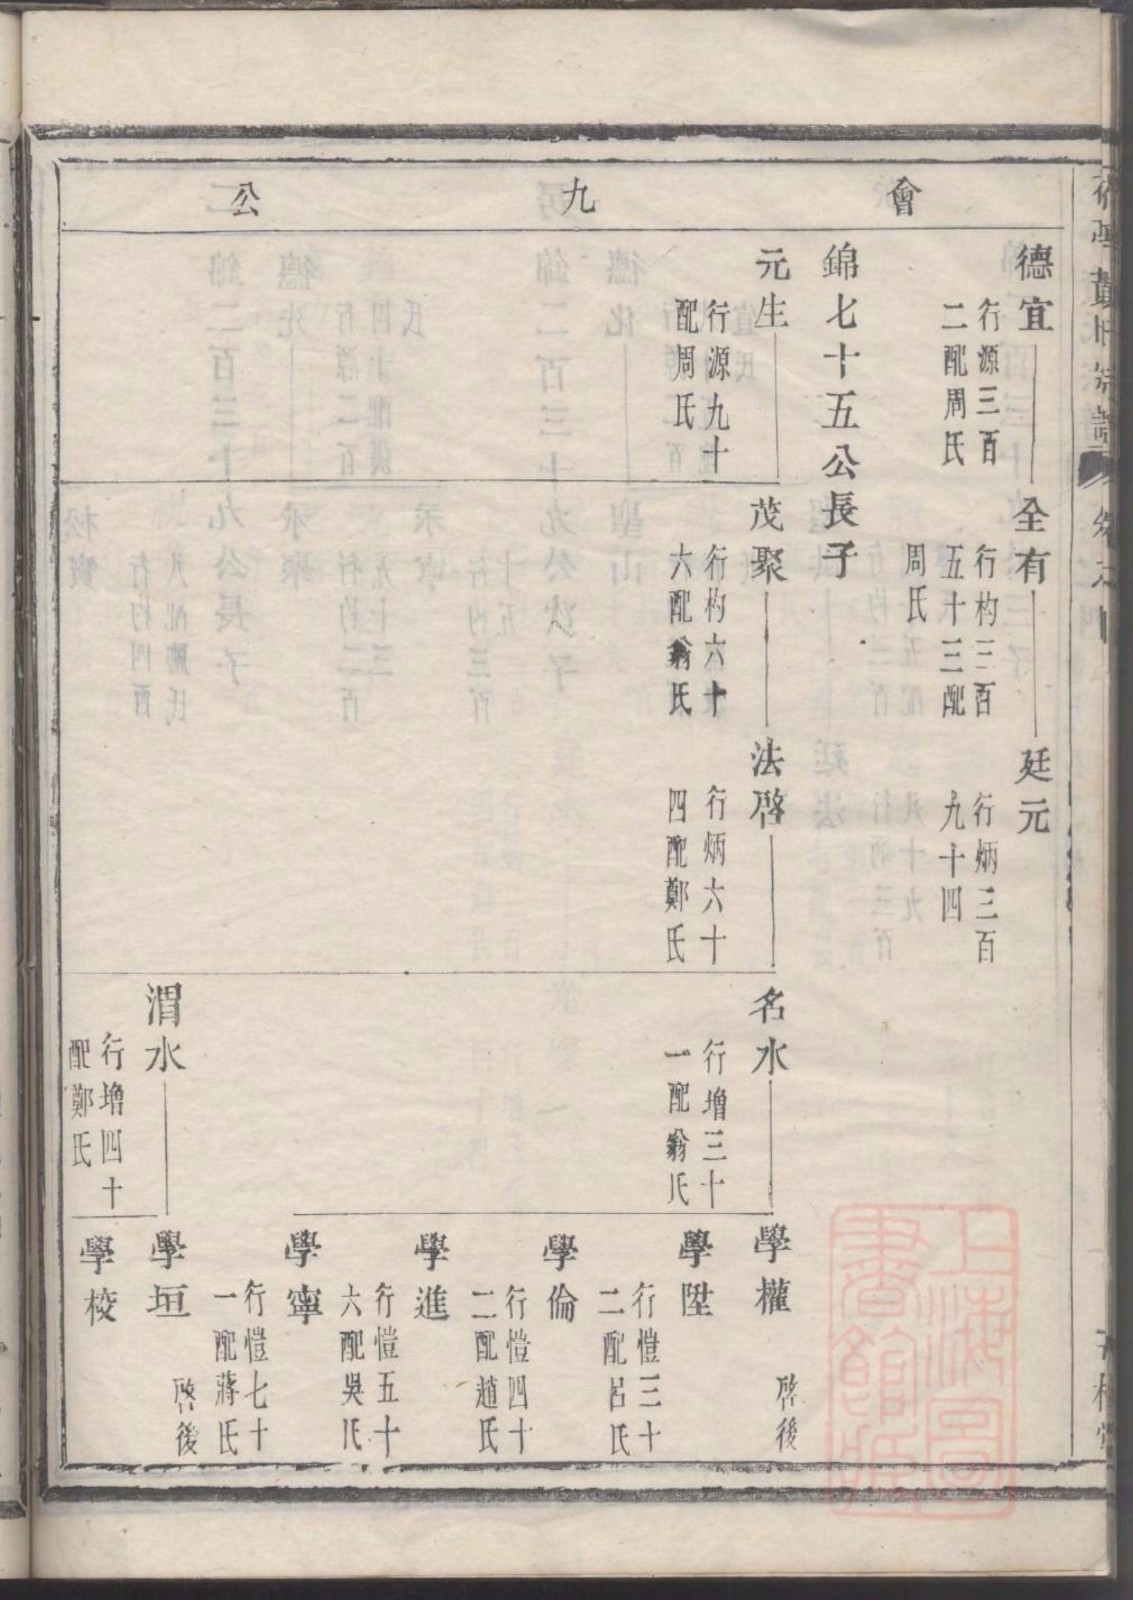 會九公
德宜
行源三百
二配周氏
全有
行杓三百
五十三配
周氏
廷元
行炳三百
九十四
錦七十五公長子
元生
行源九十
配周氏
茂聚
行杓六十
六配翁氏
法啓
行炳六十
四配鄭氏
名水
行增三十
一配翁氏
學權
啓後
學陞
行愷三十
二配呂氏
學倫
行愷四十
二配趙氏
學進
行愷五十
六配吳氏
學寧
行愷七十
一配蔣氏
渭水
行增四十
配鄭氏
學垣
啓後
學校
上海圖
書館藏